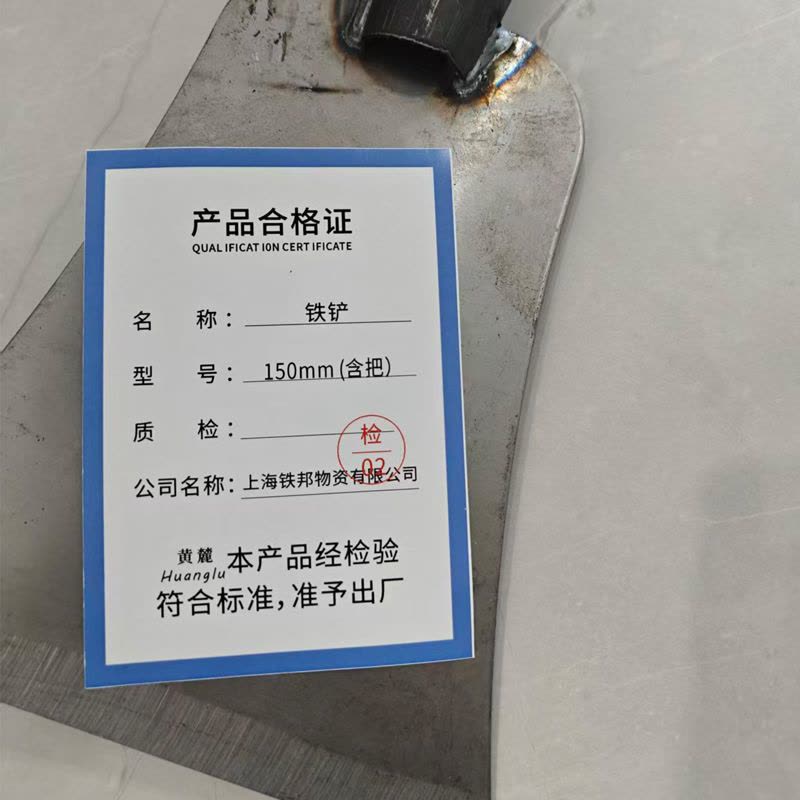 产品合格证
QUALIFICATION CERTIFICATE
名 称： 铁铲
型 号： 150mm(含把)
质 检：
检
02
公司名称：上海铁邦物资有限公司
黄麓 本产品经检验
Huanglu
符合标准，准予出厂